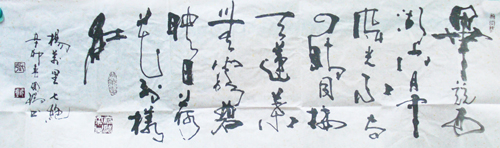 畢竟西
湖六月中
風光不与
四時同接
天蓮葉
無窮碧
映日荷
花别樣
紅
楊萬里七絶
辛卯